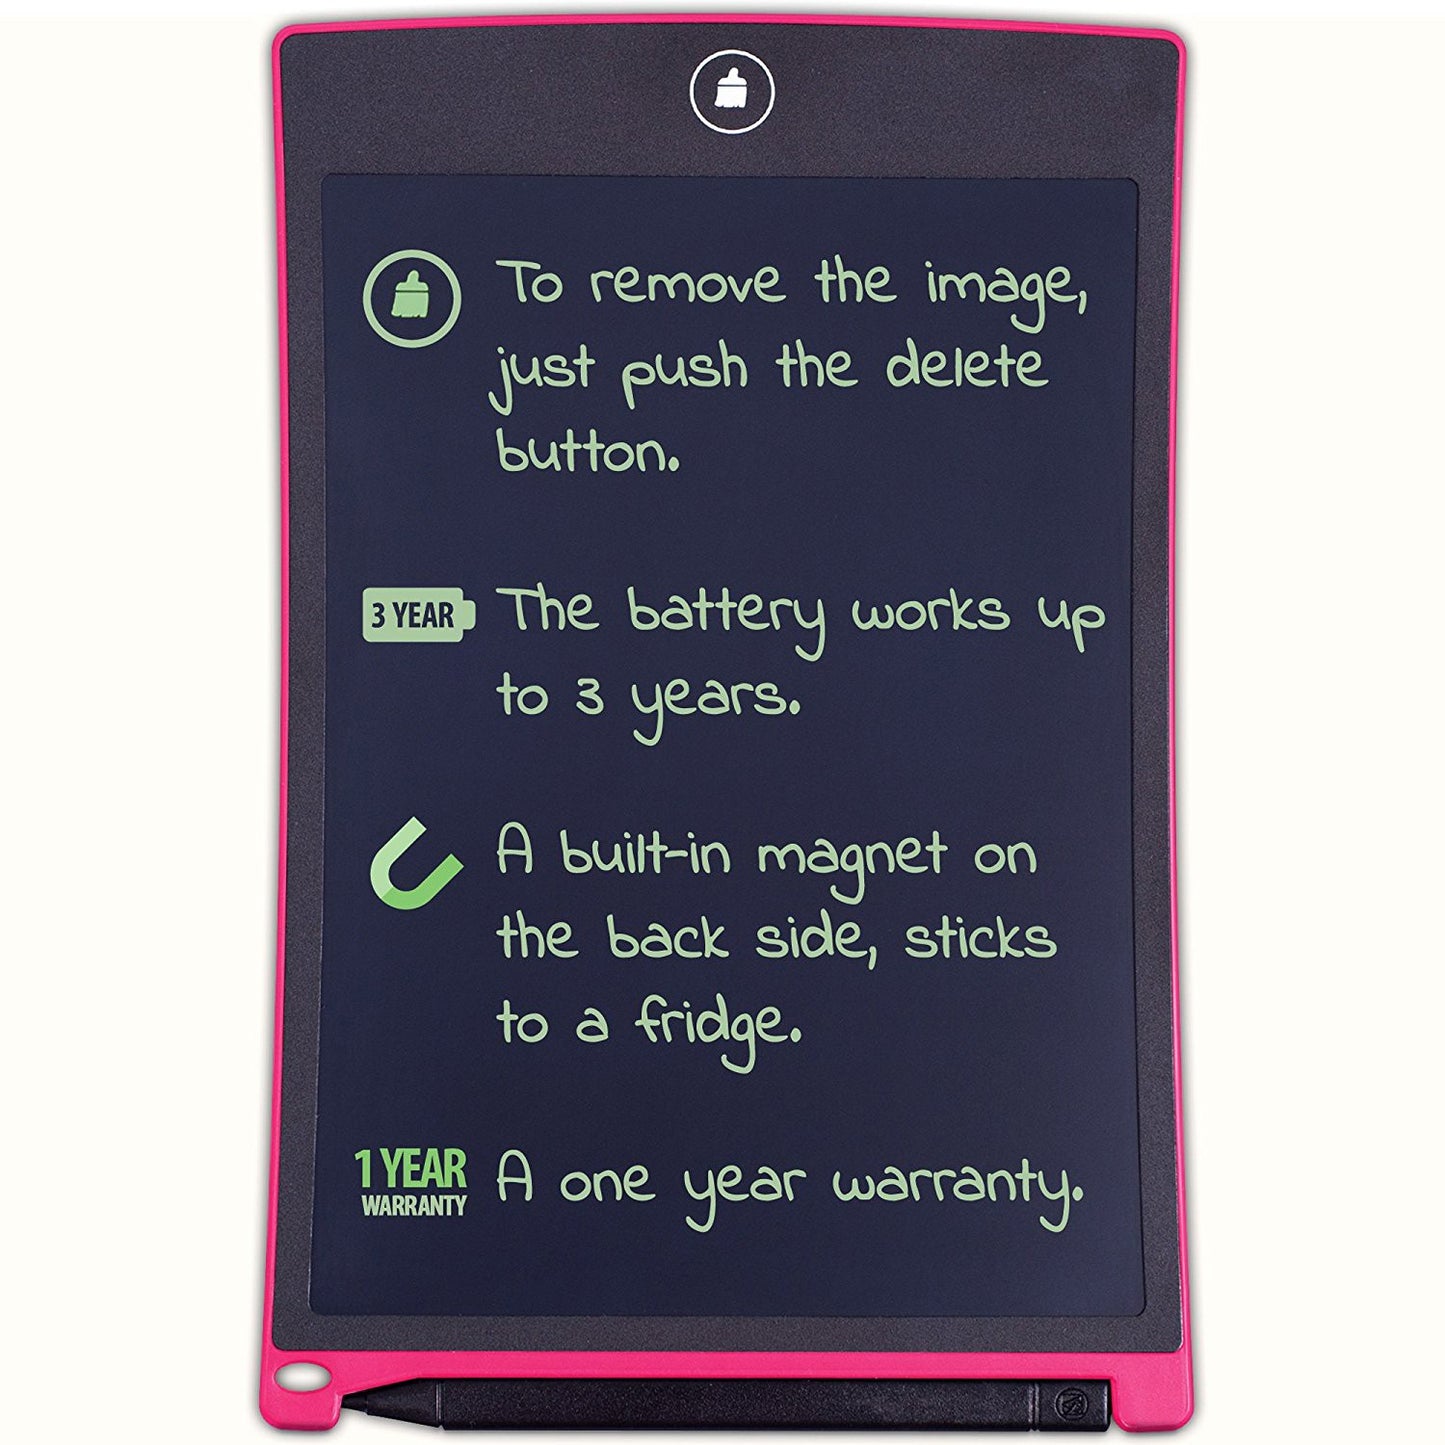 To remove the image,
just push the delete
button.
3 YEAR
The battery works up
to 3 years.
A built-in magnet on
the back side, sticks
to a fridge.
1 YEAR
WARRANTY
A one year warranty.